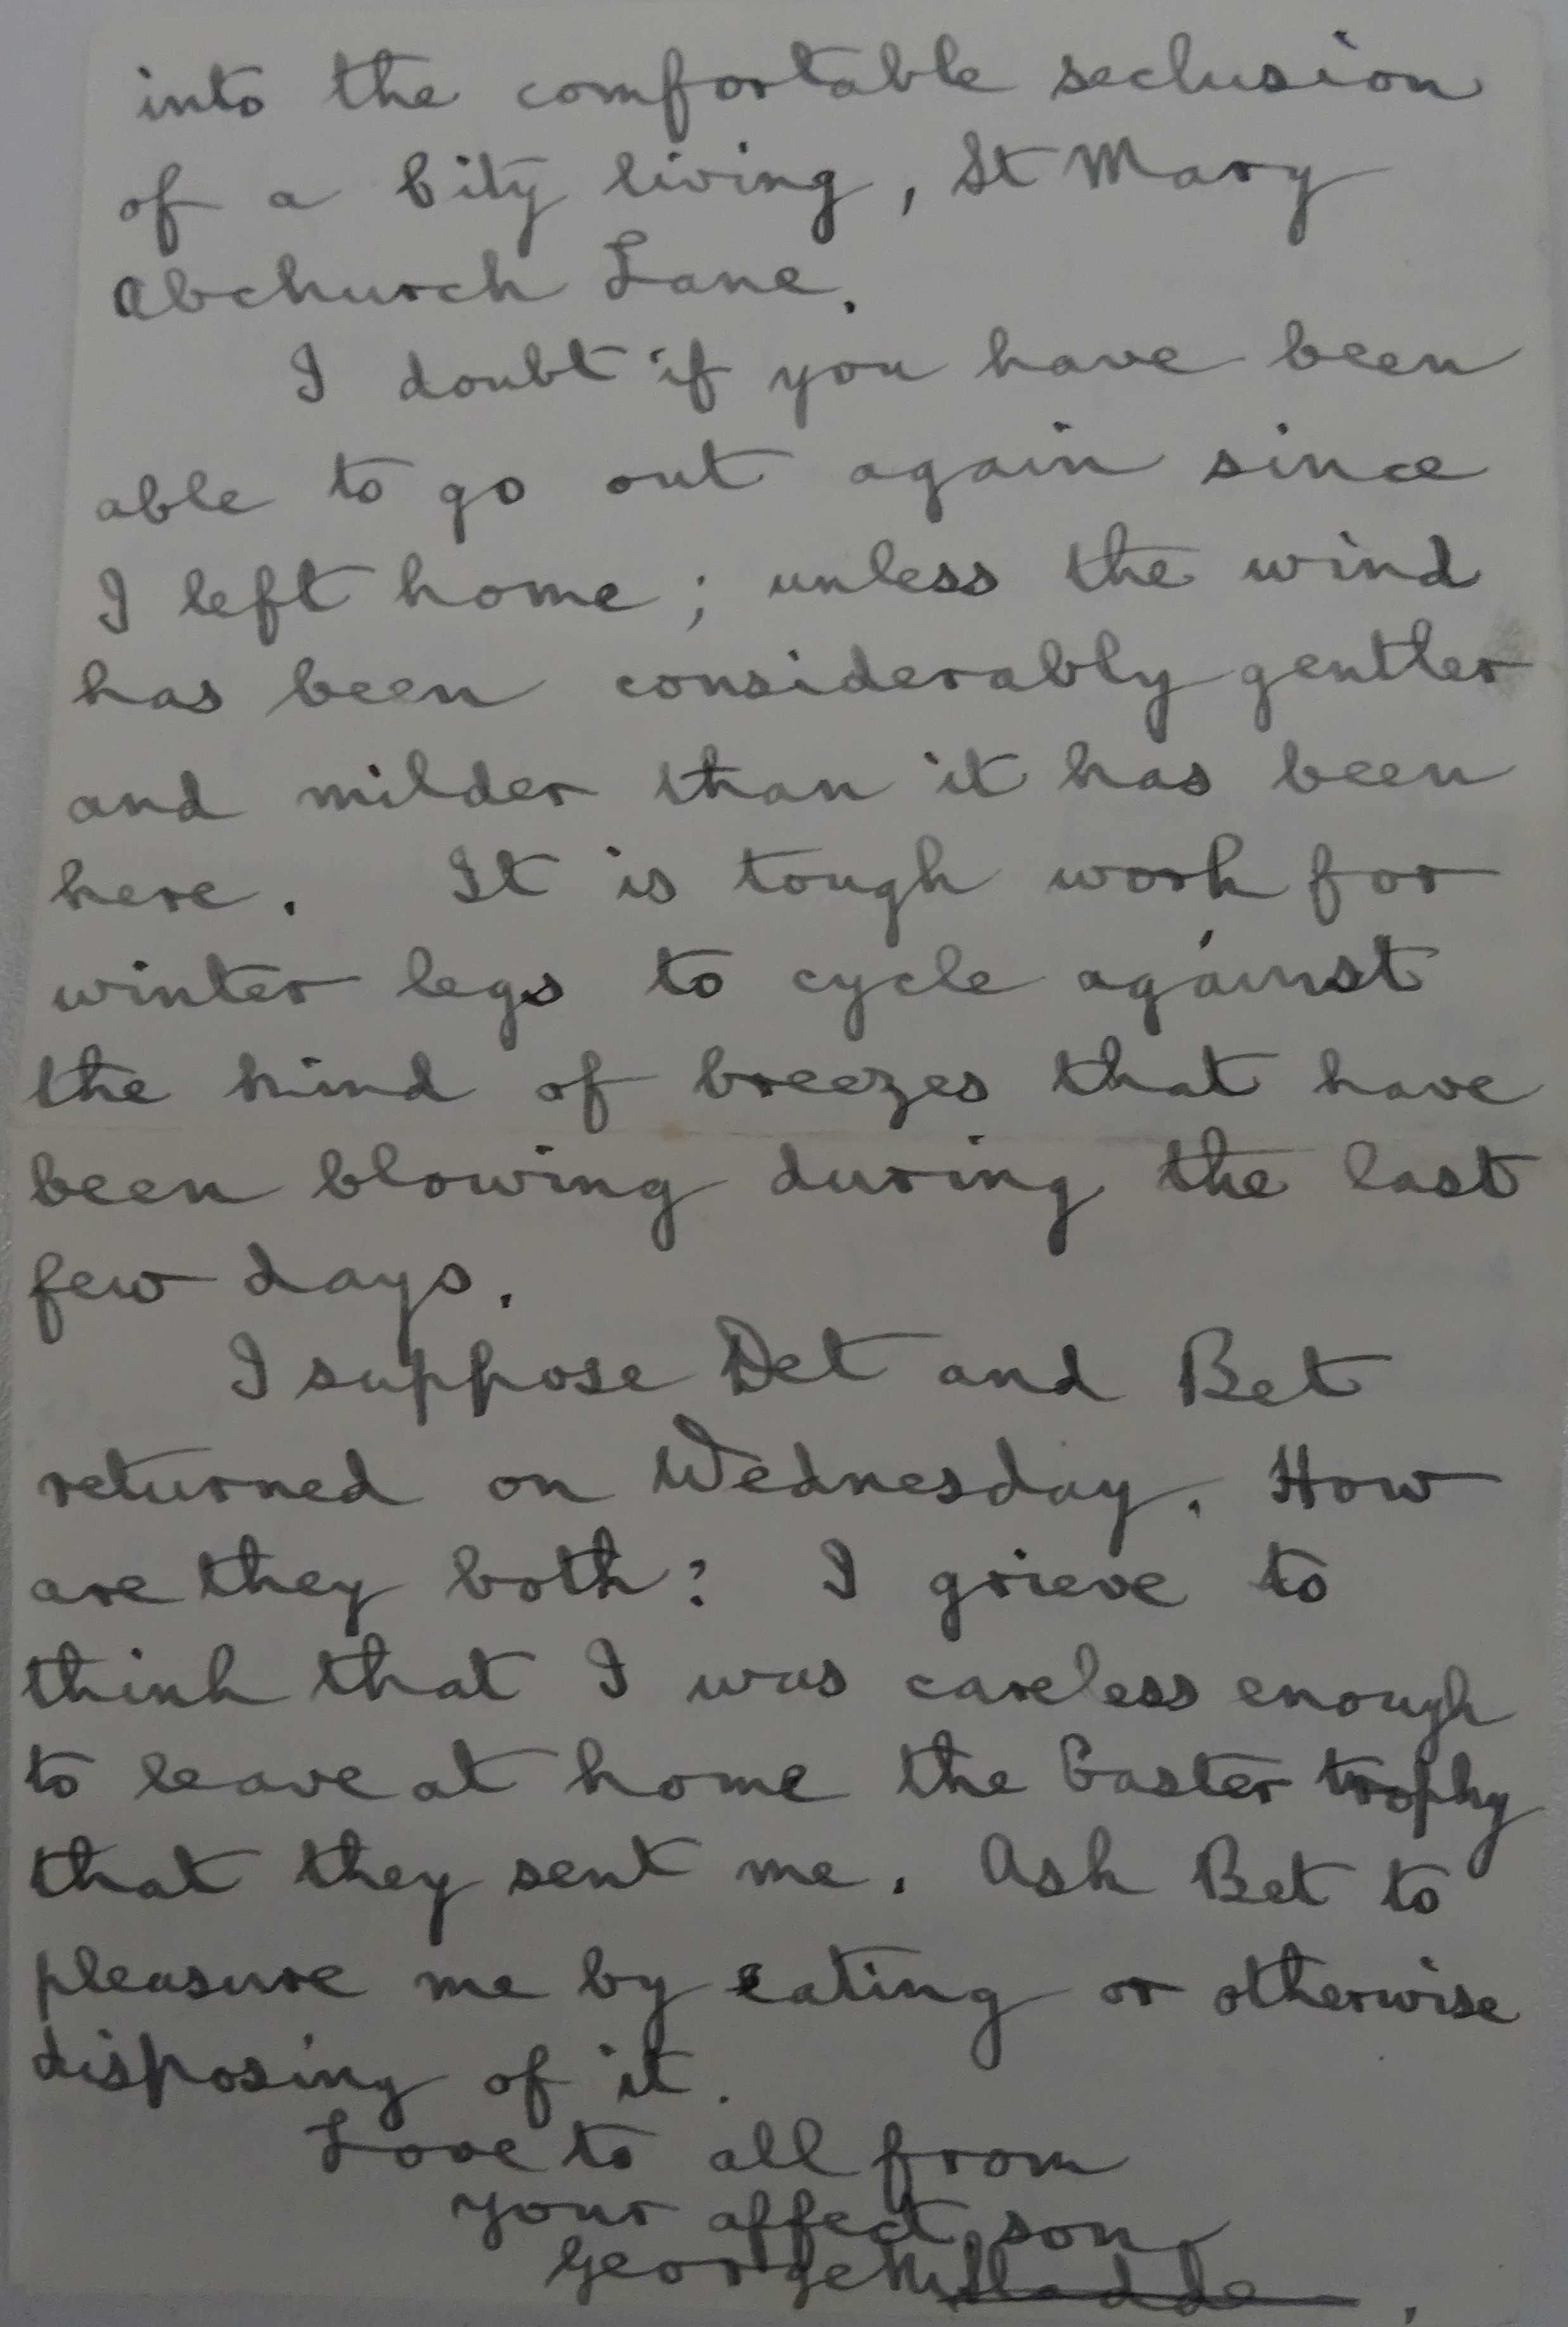 into the comfortable seclusion
of a City living, St Mary
Abchurch Lane.
I doubt if you have been
able to go out again since
I left home; unless the wind
has been considerably gentler
and milder than it has been
here. It is tough work for
winter legs to cycle against
the kind of breezes that have
been blowing during the last
few days.
I suppose Det and Bet
returned on Wednesday. How
are they both? I grieve to
think that I was careless enough
to leave at home the Easter trophy
that they sent me. Ask Bet to
pleasure me by eating or otherwise
disposing of it.
Love to all from
your affect. son,
George